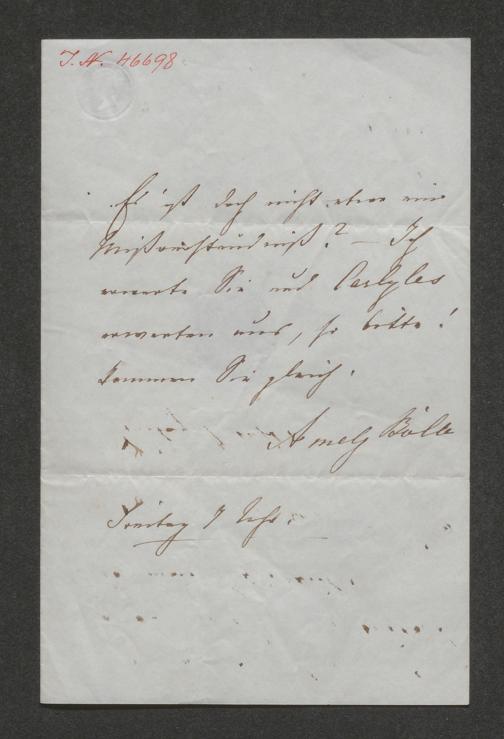 I. N. 46698
Es ist doch nicht etwa ein
Mißverständniß? — Ich
erwarte Sie und Carlyles
erwarten uns, so bitte!
kommen Sie gleich.
Amely Bölte
Freitag 7 Uhr.